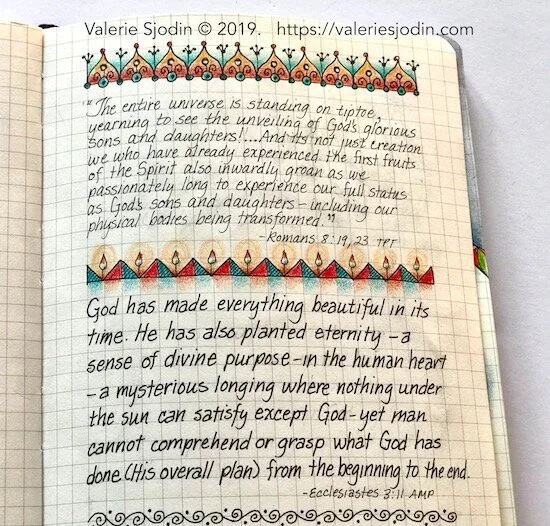 Valerie Sjodin © 2019. https://valeriesjodin.com
"The entire universe is standing on tiptoe,
yearning to see the unveiling of God's glorious
sons and daughters!"...And it's not just creation
we who have already experienced the first fruits
of the Spirit also inwardly groan as we
passionately long to experience our full status
as God's sons and daughters – including our
physical bodies being transformed."
-Romans 8:19,23 TPT
God has made everything beautiful in its
time. He has also planted eternity – a
sense of divine purpose – in the human heart
– a mysterious longing where nothing under
the sun can satisfy except God – yet man
cannot comprehend or grasp what God has
done (His overall plan) from the beginning to the end.
-Ecclesiastes 3:11 AMP